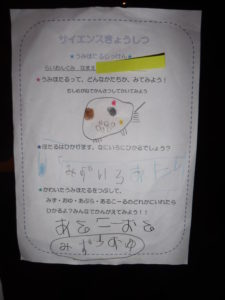 サイエンスきょうしつ
★うみほたるじっけん★
らいおんぐみ なまえ
★うみほたるって、どんなかたちか、みてみよう!
むしめがねでかんさつしてかいてみよう
★ほたるはひかります。なにいろにひかるでしょう?
みずいろ
★かわいたうみほたるをつぶして、
みず・おゆ・あぶら・あるこーるのどれかにいれたら
ひかるよ?みんなでかんがえてみよう!!
あるこーる
みず おゆ